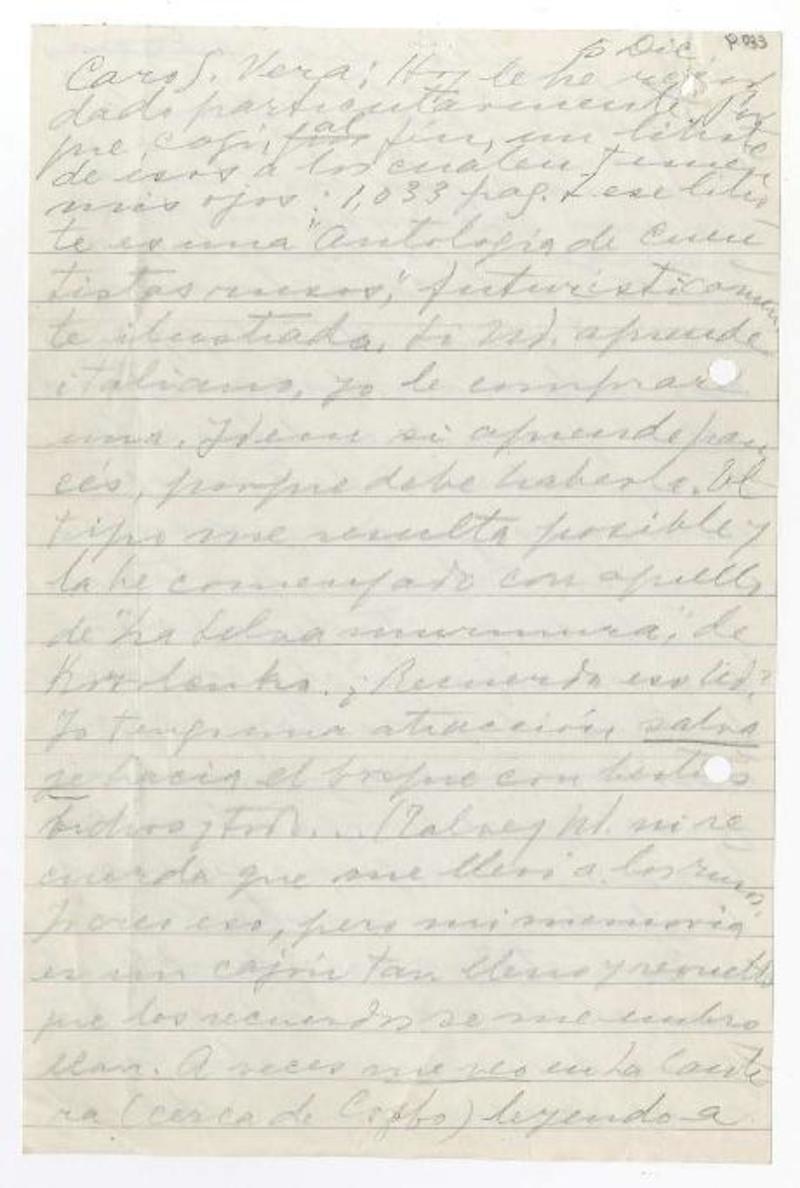 P 033
6 Dic.
Caro S. Vera: Hoy le he recor
dado particularmente. Por
que cogí, al fin, un librote
de esos a los cuales temen
mis ojos: 1,033 pag. ese libro
te es una "Antología de Cuen
tistas rusos", futurísticamen
te ilustrada. Si Ud. aprende
italiano, yo le compraré
una. Idem si aprende fran
cés, porque debe haberla. El
tipo me resulta posible y
la he comenzado con aquello
de "La selva murmura", de
Korolenko. ¿Recuerda eso Ud.?
Yo tengo una atracción salva
je hacia el bosque con bestias
y todo...
cuerda que me llevó a los rusos.
Yo creo eso, pero mi memoria
es un cajón tan lleno y revuelto
que los recuerdos se me embro
llan. A veces me veo en La Cante
ra (cerca de Cqbo) leyendo a